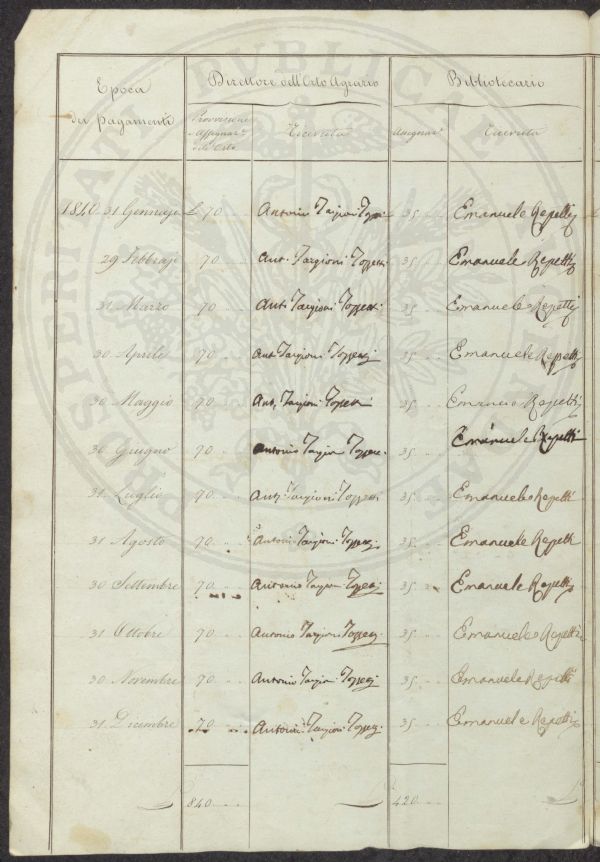 Epoca dei pagamenti
Direttore dell'Orto Agrario
Bibliotecario
Provvisione
Assegnaz.e
dell'Orto
Ricevuta
Assegnaz.e
Ricevuta
1840. 31 Gennajo L. 70 Antonio Targioni Tozz. L. 35 Emanuele Repetti
29 Febbrajo 70 Ant. Targioni Tozzetti 35 Emanuele Repetti
31 Marzo 70 Ant. Targioni Tozzetti 35 Emanuele Repetti
30 Aprile 70 Ant. Targioni Tozzetti 35 Emanuele Repetti
31 Maggio 70 Ant. Targioni Tozzetti 35 Emanuele Repetti
30 Giugno 70 Antonio Targioni Tozzetti 35 Emanuele Repetti
31 Luglio 70 Ant. Targioni Tozzetti 35 Emanuele Repetti
31 Agosto 70 Antonio Targioni Tozzetti 35 Emanuele Repetti
30 Settembre 70 Antonio Targioni Tozzetti 35 Emanuele Repetti
31 Ottobre 70 Antonio Targioni Tozzetti 35 Emanuele Repetti
30 Novembre 70 Antonio Targioni Tozzetti 35 Emanuele Repetti
31 Dicembre 70 Antonio Targioni Tozzetti 35 Emanuele Repetti
L. 840 L. 420 L.
PROSPERITATI PUBLICAE